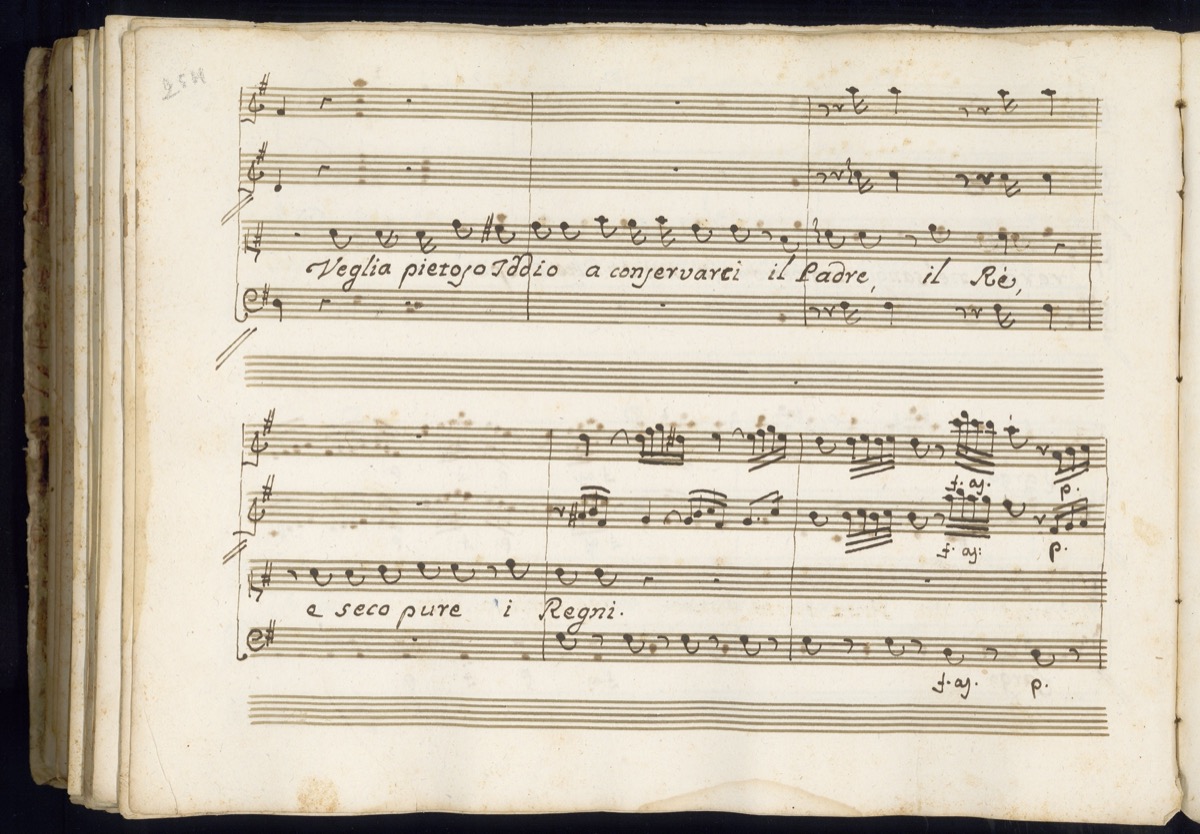 Veglia pietoso Iddio a conservarti il Padre, il Rè,
f. aj. p.
f. aj: p.
e seco pure i Regni.
f. aj. p.